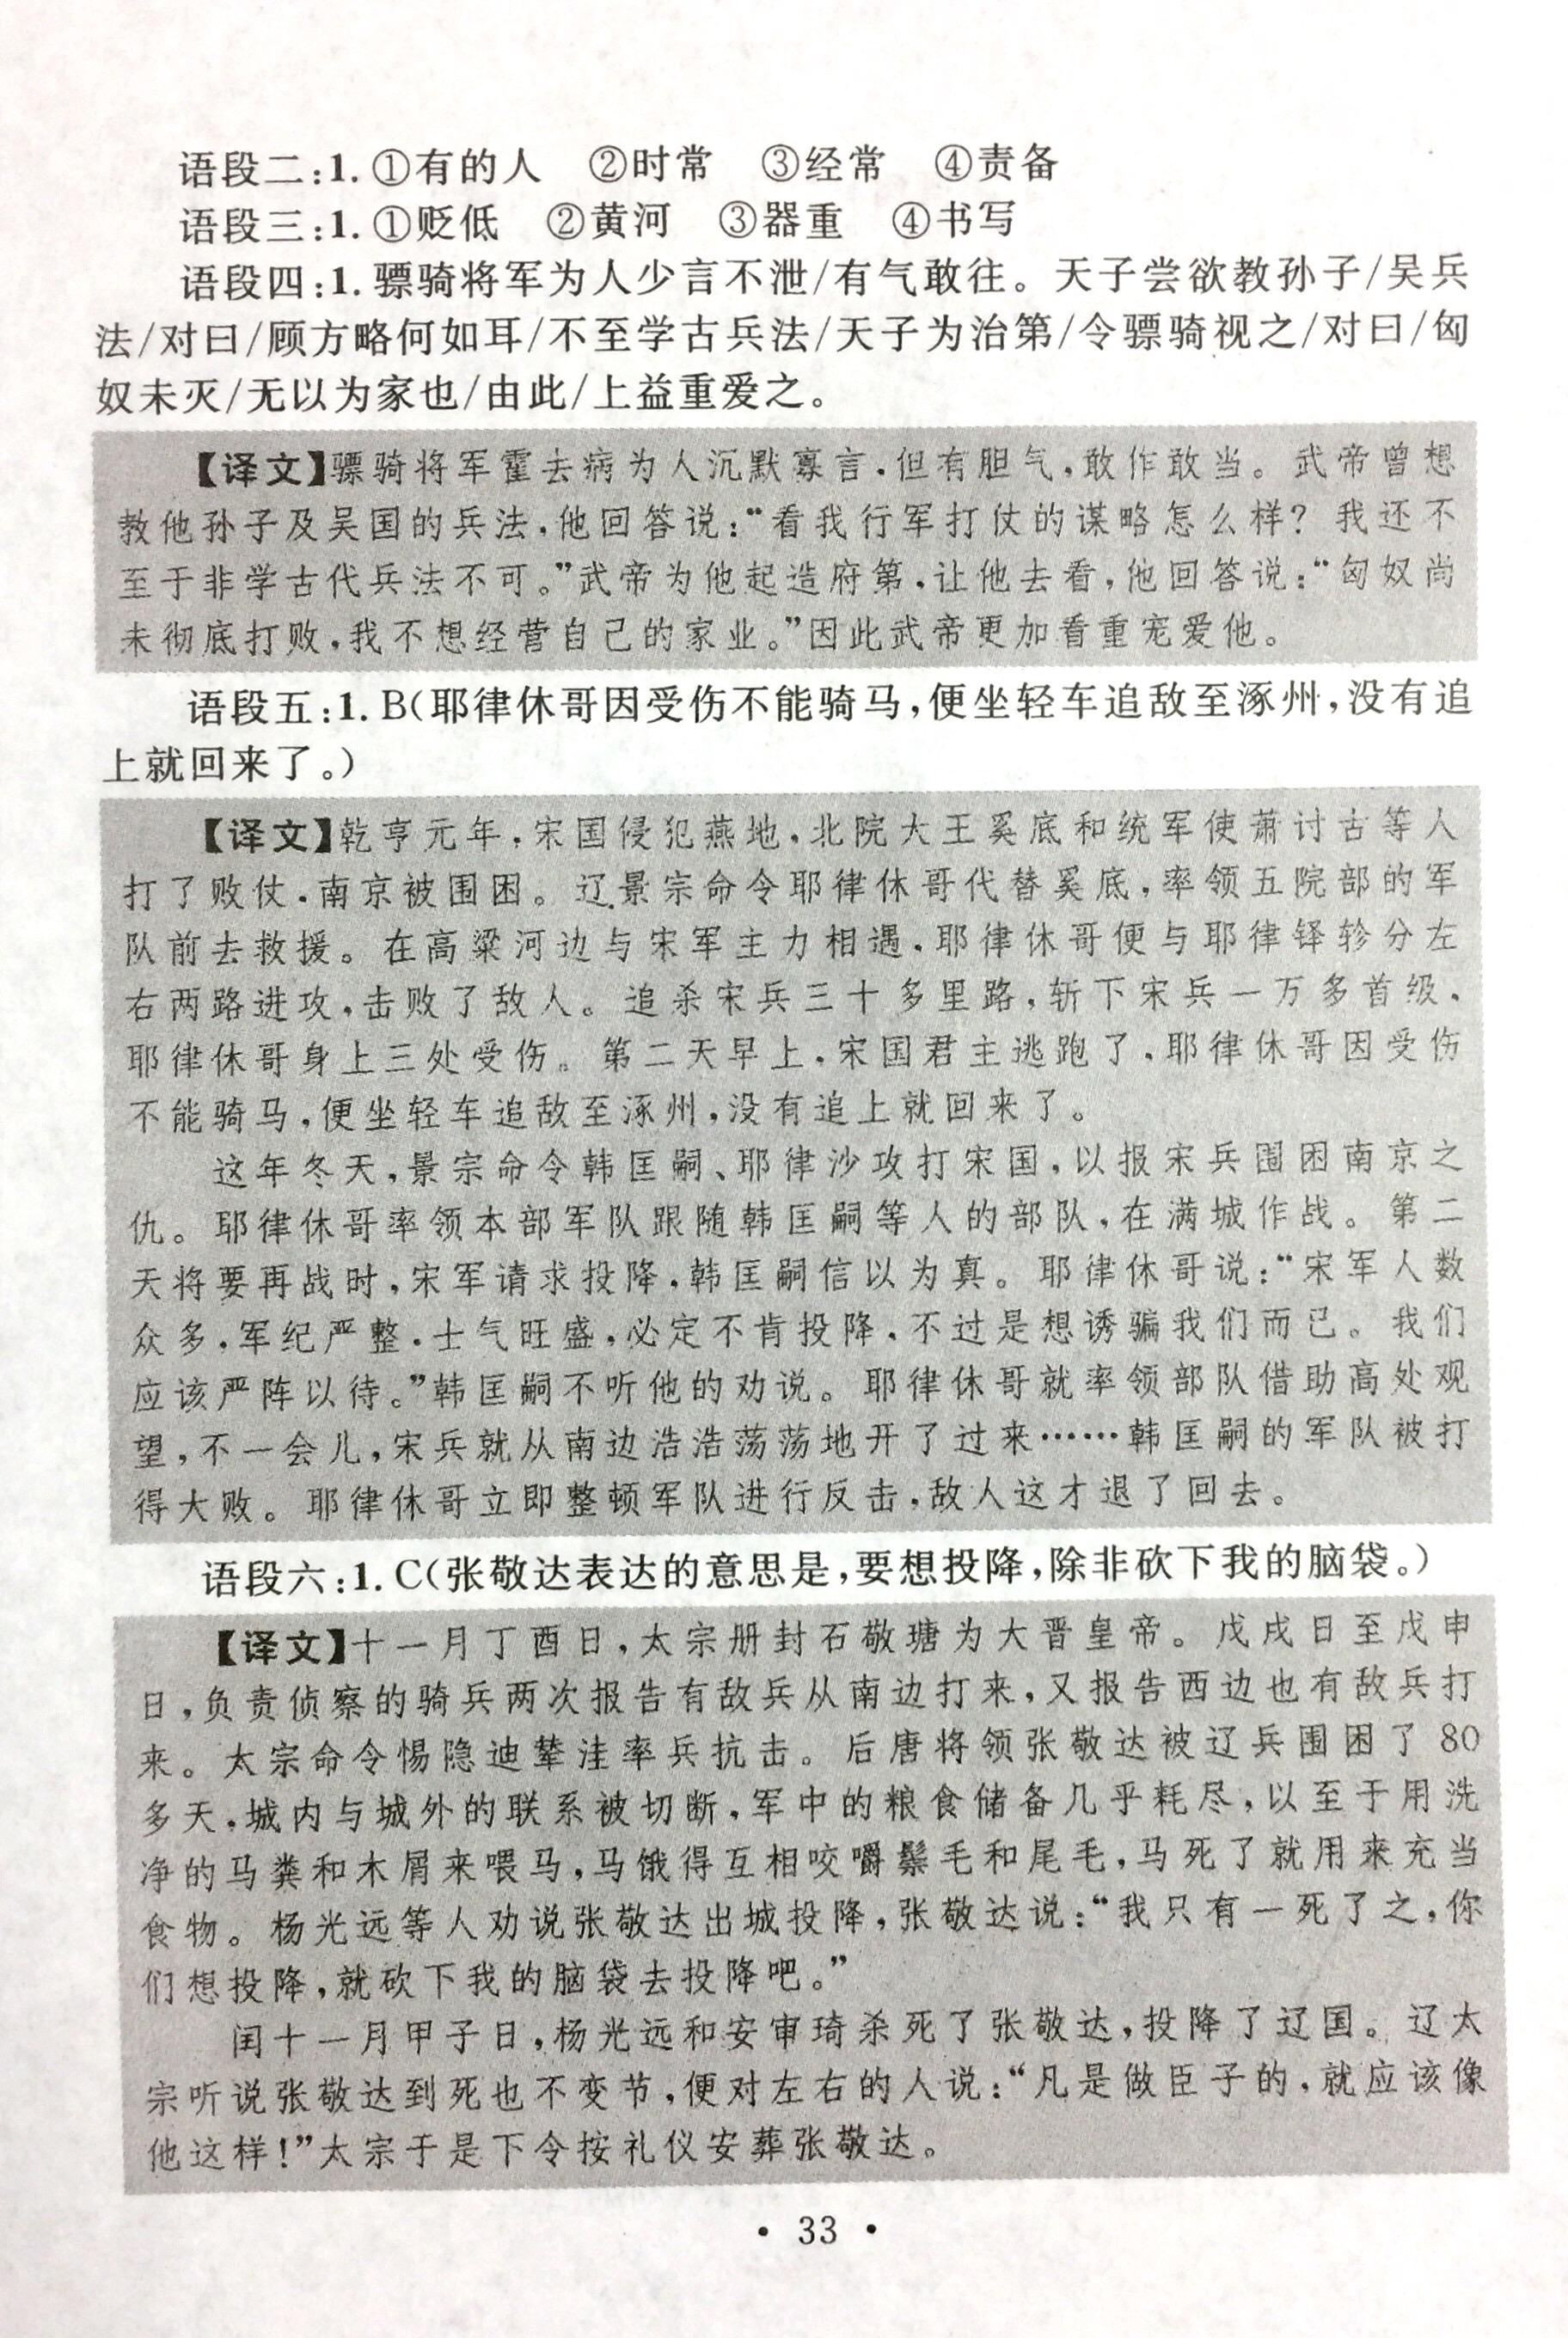 语段二:1.①有的人 ②时常 ③经常 ④责备
语段三:1.①贬低 ②黄河 ③器重 ④书写
语段四:1.骠骑将军为人少言不泄/有气敢往。天子尝欲教孙子/吴兵
法/对曰/顾方略何如耳/不至学古兵法/天子为治第/令骠骑视之/对曰/匈
奴未灭/无以为家也/由此/上益重爱之。
【译文】骠骑将军霍去病为人沉默寡言,但有胆气,敢作敢当。武帝曾想
教他孙子及吴国的兵法,他回答说:“看我行军打仗的谋略怎么样?我还不
至于非学古代兵法不可。”武帝为他起造府第,让他去看,他回答说:“匈奴尚
未彻底打败,我不想经营自己的家业。”因此武帝更加看重宠爱他。
语段五:1.B(耶律休哥因受伤不能骑马,便坐轻车追敌至涿州,没有追
上就回来了。)
【译文】乾亨元年,宋国侵犯燕地,北院大王奚底和统军使萧讨古等人
打了败仗,南京被围困。辽景宗命令耶律休哥代替奚底,率领五院部的军
队前去救援。在高粱河边与宋军主力相遇,耶律休哥便与耶律铎轸分左
右两路进攻,击败了敌人。追杀宋兵三十多里路,斩下宋兵一万多首级,
耶律休哥身上三处受伤。第二天早上,宋国君主逃跑了,耶律休哥因受伤
不能骑马,便坐轻车追敌至涿州,没有追上就回来了。
这年冬天,景宗命令韩匡嗣、耶律沙攻打宋国,以报宋兵围困南京之
仇。耶律休哥率领本部军队跟随韩匡嗣等人的部队,在满城作战。第二
天将要再战时,宋军请求投降,韩匡嗣信以为真。耶律休哥说:“宋军人数
众多,军纪严整,士气旺盛,必定不肯投降,不过是想诱骗我们而已。我们
应该严阵以待。”韩匡嗣不听他的劝说。耶律休哥就率领部队借助高处观
望,不一会儿,宋兵就从南边浩浩荡荡地开了过来……韩匡嗣的军队被打
得大败。耶律休哥立即整顿军队进行反击,敌人这才退了回去。
语段六:1.C(张敬达表达的意思是,要想投降,除非砍下我的脑袋。)
【译文】十一月丁酉日,太宗册封石敬瑭为大晋皇帝。戊戌日至戊申
日,负责侦察的骑兵两次报告有敌兵从南边打来,又报告西边也有敌兵打
来。太宗命令惕隐迪辇洼率兵抗击。后唐将领张敬达被辽兵围困了80
多天,城内与城外的联系被切断,军中的粮食储备几乎耗尽,以至于用洗
净的马粪和木屑来喂马,马饿得互相咬嚼鬃毛和尾毛,马死了就用来充当
食物。杨光远等人劝说张敬达出城投降,张敬达说:“我只有一死了之,你
们想投降,就砍下我的脑袋去投降吧。”
闰十一月甲子日,杨光远和安审琦杀死了张敬达,投降了辽国。辽太
宗听说张敬达到死也不变节,便对左右的人说:“凡是做臣子的,就应该像
他这样!”太宗于是下令按礼仪安葬张敬达。
· 33 ·